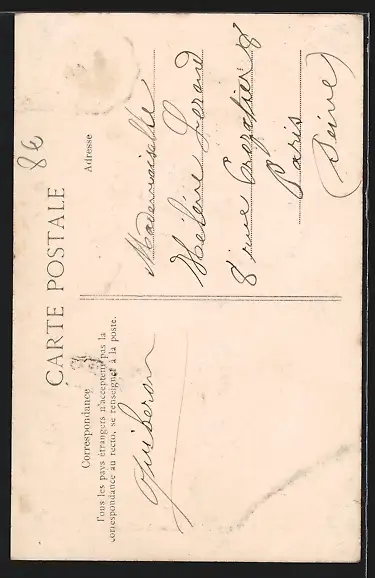 8€
CARTE POSTALE
Correspondance
Tous les pays étrangers n'acceptent pas la
correspondance au recto, se renseigner à la poste.
Quiberon
Adresse
Mademoiselle
Hélène
8 rue Crozatier 8
Paris
(Seine)